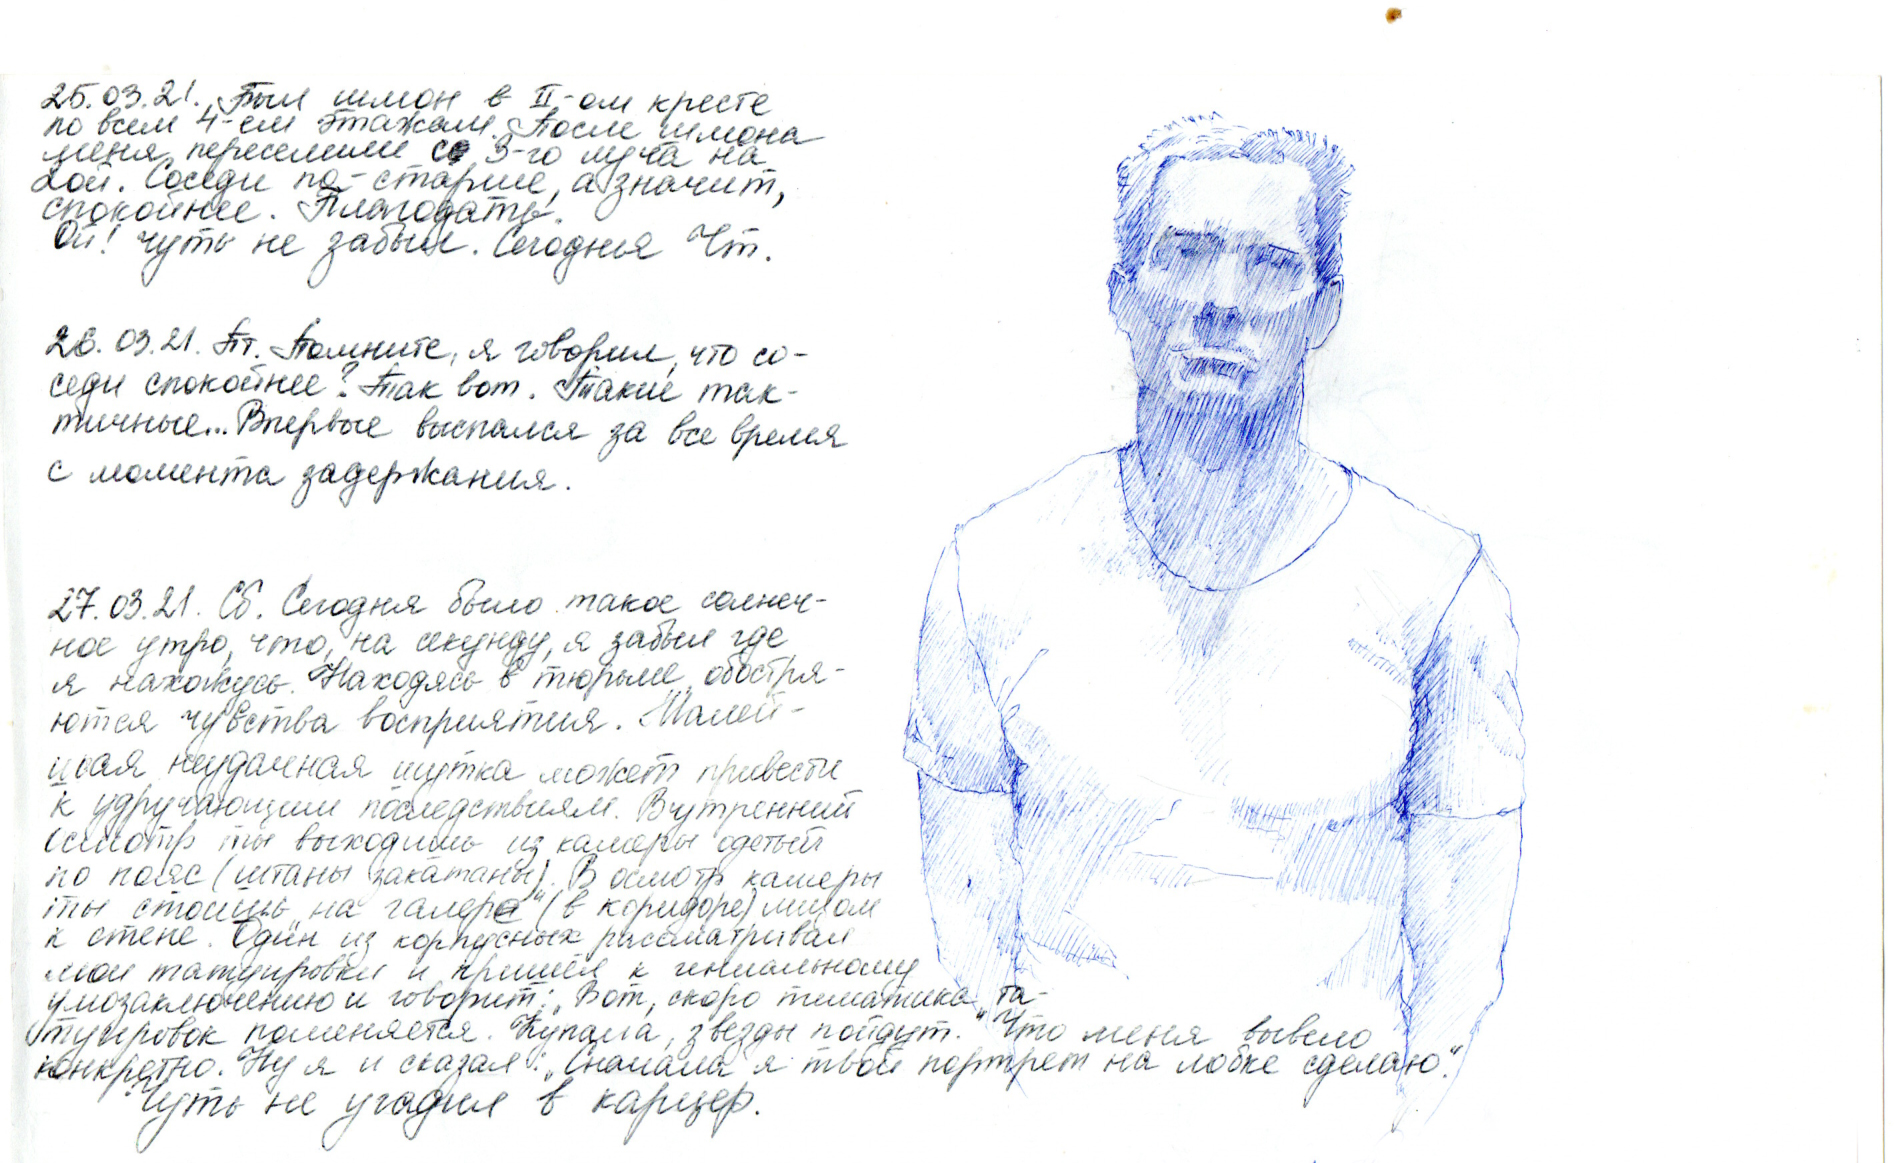 25.03.21. Был шмон в II-ом кресте
по всем 4-ем этажам. После шмона
меня переселили со 3-го луча на
2ой. Соседи по-старше, а значит,
спокойнее. Благодать.
Ой! Чуть не забыл. Сегодня Чт.
26.03.21. Пт. Помните, я говорил, что со-
седи спокойнее? Так вот. Такие так-
тичные... Впервые выспался за все время
с момента задержания.
27.03.21. Сб. Сегодня было такое солнеч-
ное утро, что, на секунду, я забыл где
я нахожусь. Находясь в тюрьме, обостря-
ются чувства восприятия. Малей-
шая неудачная шутка может привести
к удручающим последствиям. Внутренний
осмотр ты выходишь из камеры одетый
по пояс (штаны закатаны). В осмотр камеры
ты стоишь "на галере" (в коридоре) лицом
к стене. Один из корпусных рассматривал
мои татуировки и пришёл к гениальному
умозаключению и говорит: "Вот, скоро тематика та-
туировок поменяется. Купола, звезды пойдут." Что меня вывело
конкретно. Ну я и сказал: "Сначала я твой портрет на лобке сделаю."
Чуть не угадил в карцер.